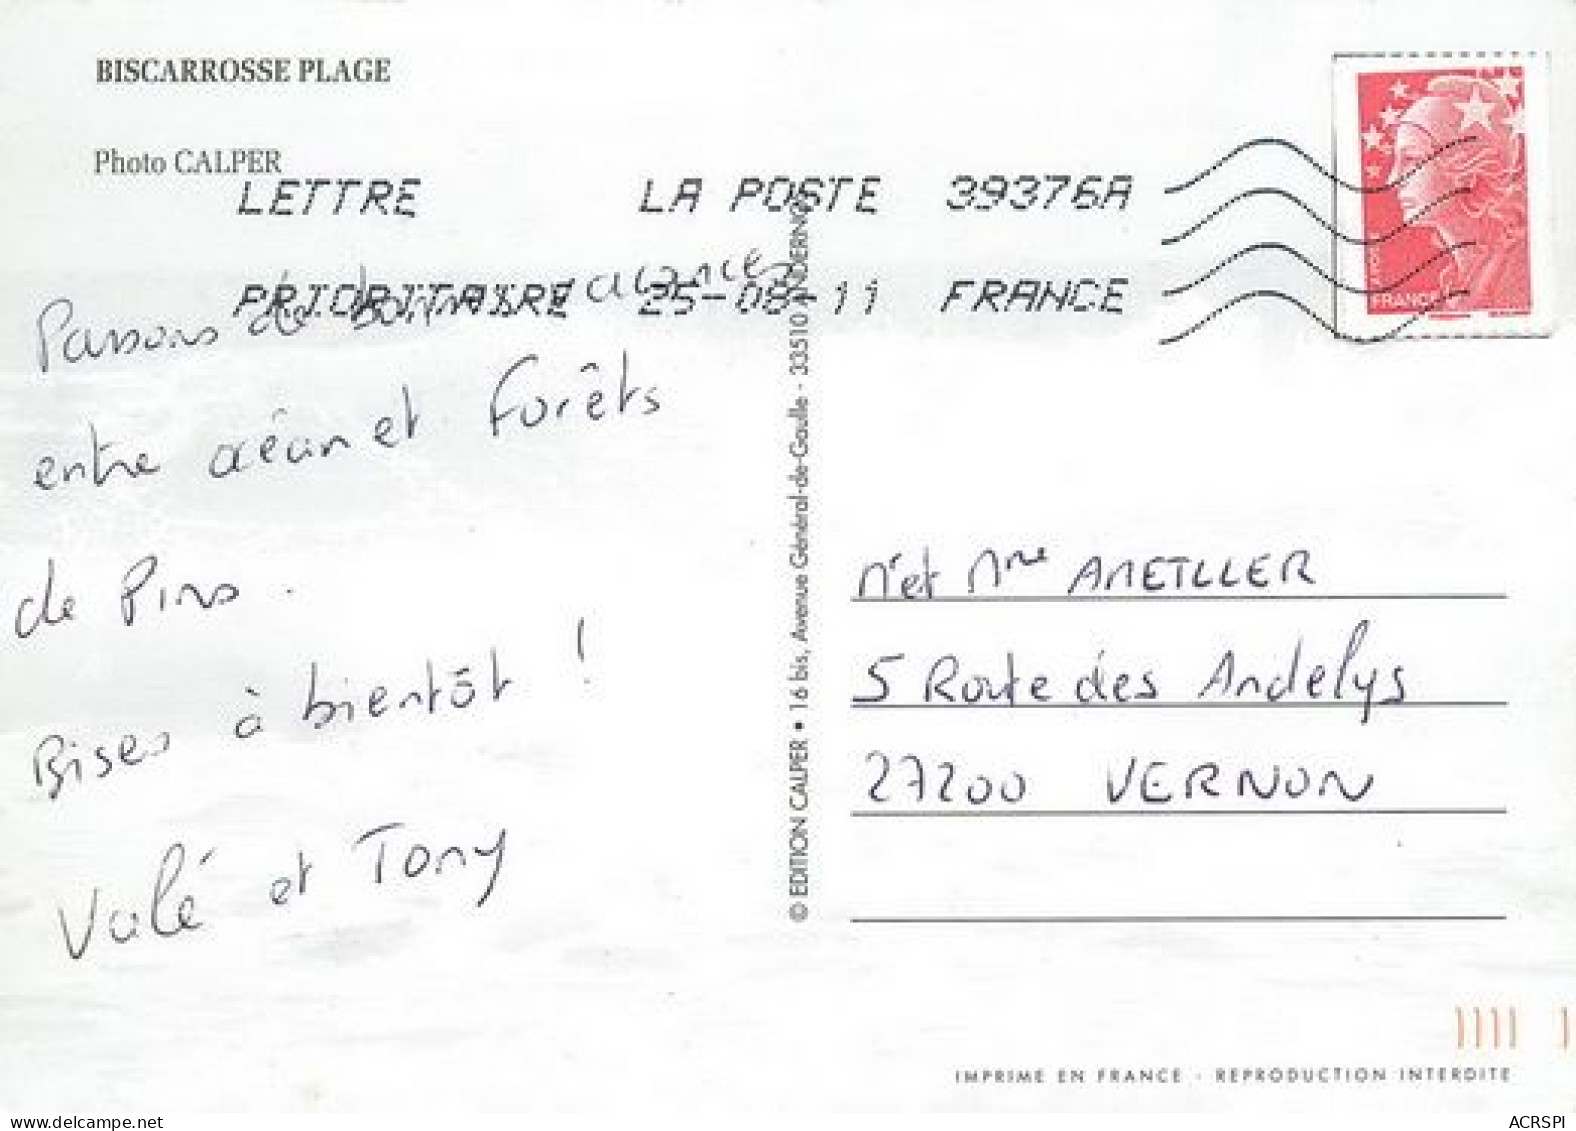 BISCARROSSE PLAGE
Photo CALPER
LETTRE LA POSTE 39376A
PRIORITAIRE 25-08-11 FRANCE
FRANCE
Passons de bonnes vacances
entre océan et Forêts
de Pins.
Bises à bientôt !
Valé et Tony
© EDITION CALPER • 16 bis, Avenue Général-de-Gaulle - 33510 ANDERNOS
M et Mme AMETLLER
5 Route des Andelys
27200 VERNON
IMPRIME EN FRANCE - REPRODUCTION INTERDITE
ACRSPI